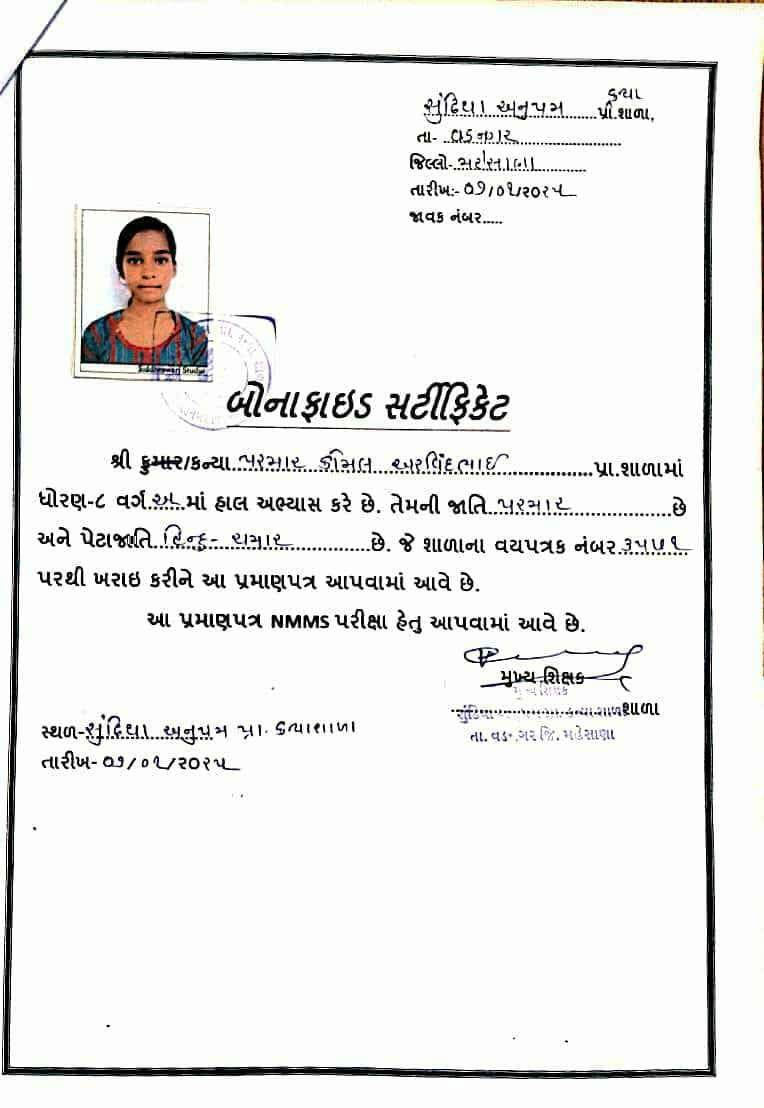 કન્યા
સુંઢિયા અનુપમ ......પ્રા.શાળા,
તા- વડનગર
જિલ્લો- મહેસાણા
તારીખ:- ૦૭/૦૧/૨૦૨૫
જાવક નંબર.....
Siddheswari Studio
બોનાફાઇડ સર્ટીફિકેટ
શ્રી કુમાર/કન્યા પરમાર કોમલ અરવિંદભાઈ ............પ્રા.શાળામાં
ધોરણ-૮ વર્ગ અ માં હાલ અભ્યાસ કરે છે. તેમની જાતિ પરમાર ............છે
અને પેટાજાતિ હિન્દુ- ચમાર ............છે. જે શાળાના વયપત્રક નંબર ૩૫૫૧
પરથી ખરાઇ કરીને આ પ્રમાણપત્ર આપવામાં આવે છે.
આ પ્રમાણપત્ર NMMS પરીક્ષા હેતુ આપવામાં આવે છે.
મુખ્ય શિક્ષક
મુખ્ય શિક્ષક
સુંઢિયા કન્યા શાળા શાળા
તા. વડનગર જિ. મહેસાણા
સ્થળ- સુંઢિયા અનુપમ પ્રા. કન્યાશાળા
તારીખ- ૦૭/૦૧/૨૦૨૫